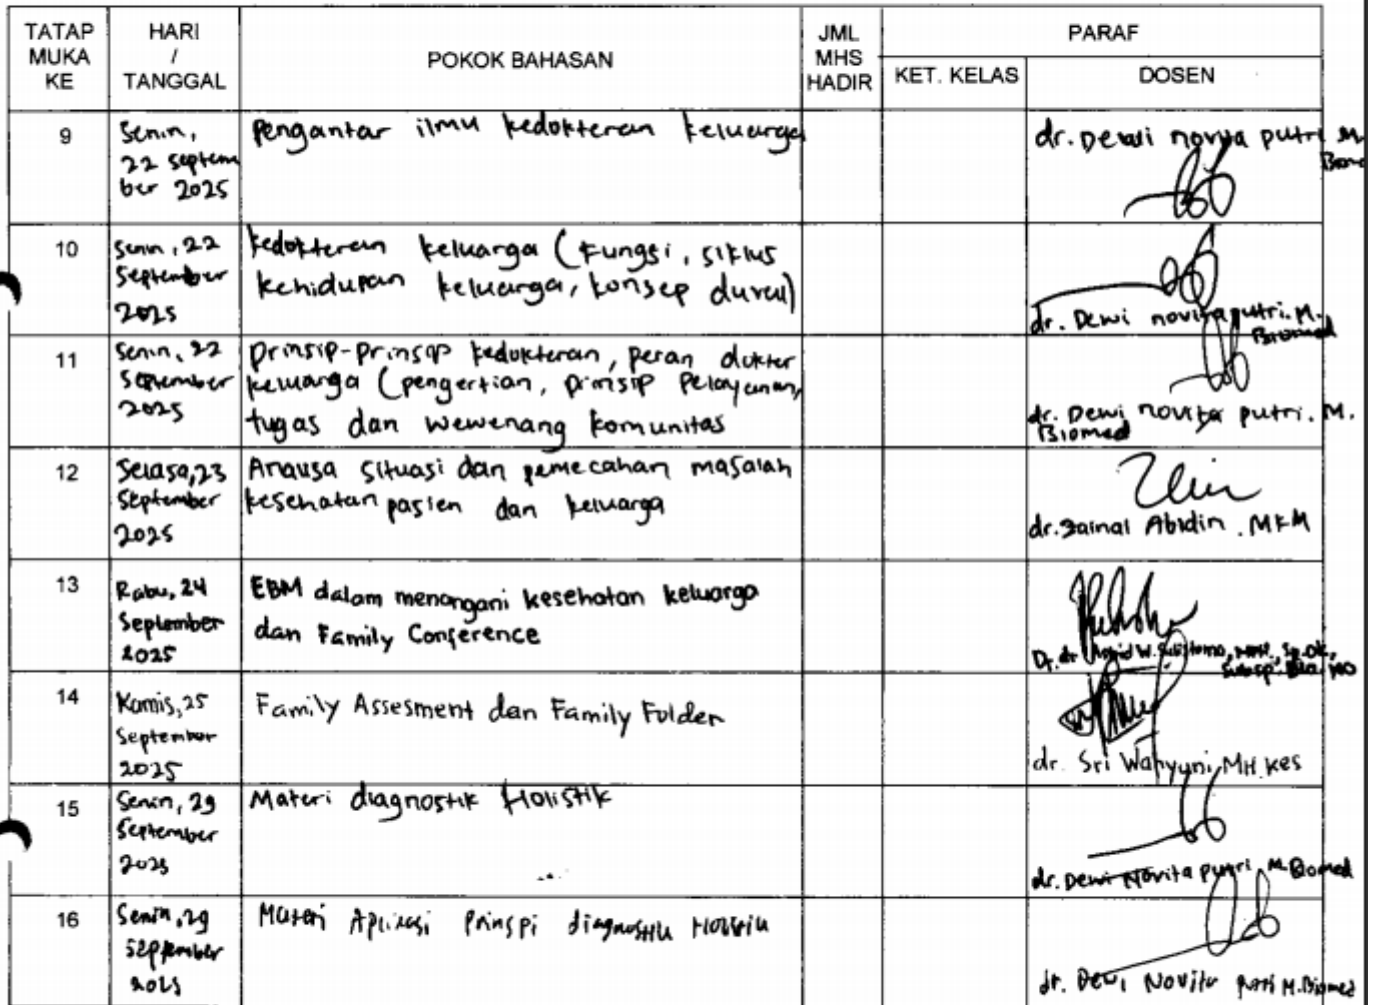 TATAP MUKA KE
HARI / TANGGAL
POKOK BAHASAN
JML MHS HADIR
PARAF
KET. KELAS
DOSEN
9
Senin,
22 Septem
ber 2025
Pengantar ilmu kedokteran keluarga
dr. Dewi novita putri M.
Biomed
10
Senin, 22
September
2025
Kedokteran keluarga (Fungsi, siklus
kehidupan keluarga, konsep duval)
dr. Dewi novita putri. M.
Biomed
11
Senin, 22
September
2025
Prinsip-prinsip kedokteran, peran dokter
keluarga (pengertian, prinsip pelayanan,
tugas dan wewenang komunitas
dr. Dewi novita putri. M.
Biomed
12
Selasa, 23
September
2025
Analisa situasi dan pemecahan masalah
kesehatan pasien dan keluarga
dr. Zainal Abidin. MKM
13
Rabu, 24
September
2025
EBM dalam menangani kesehatan keluarga
dan Family Conference
Dr. dr W. Sulistomo, Sp.Ok,
14
Kamis, 25
September
2025
Family Assesment dan Family Folder
dr. Sri Wahyuni, MH.Kes
15
Senin, 29
September
2025
Materi diagnostik Holistik
dr. Dewi Novita putri M. Biomed
16
Senin, 29
September
2025
Materi Aplikasi Prinspi diagnostik Holistik
dr. Dewi Novita Putri M. Biomed